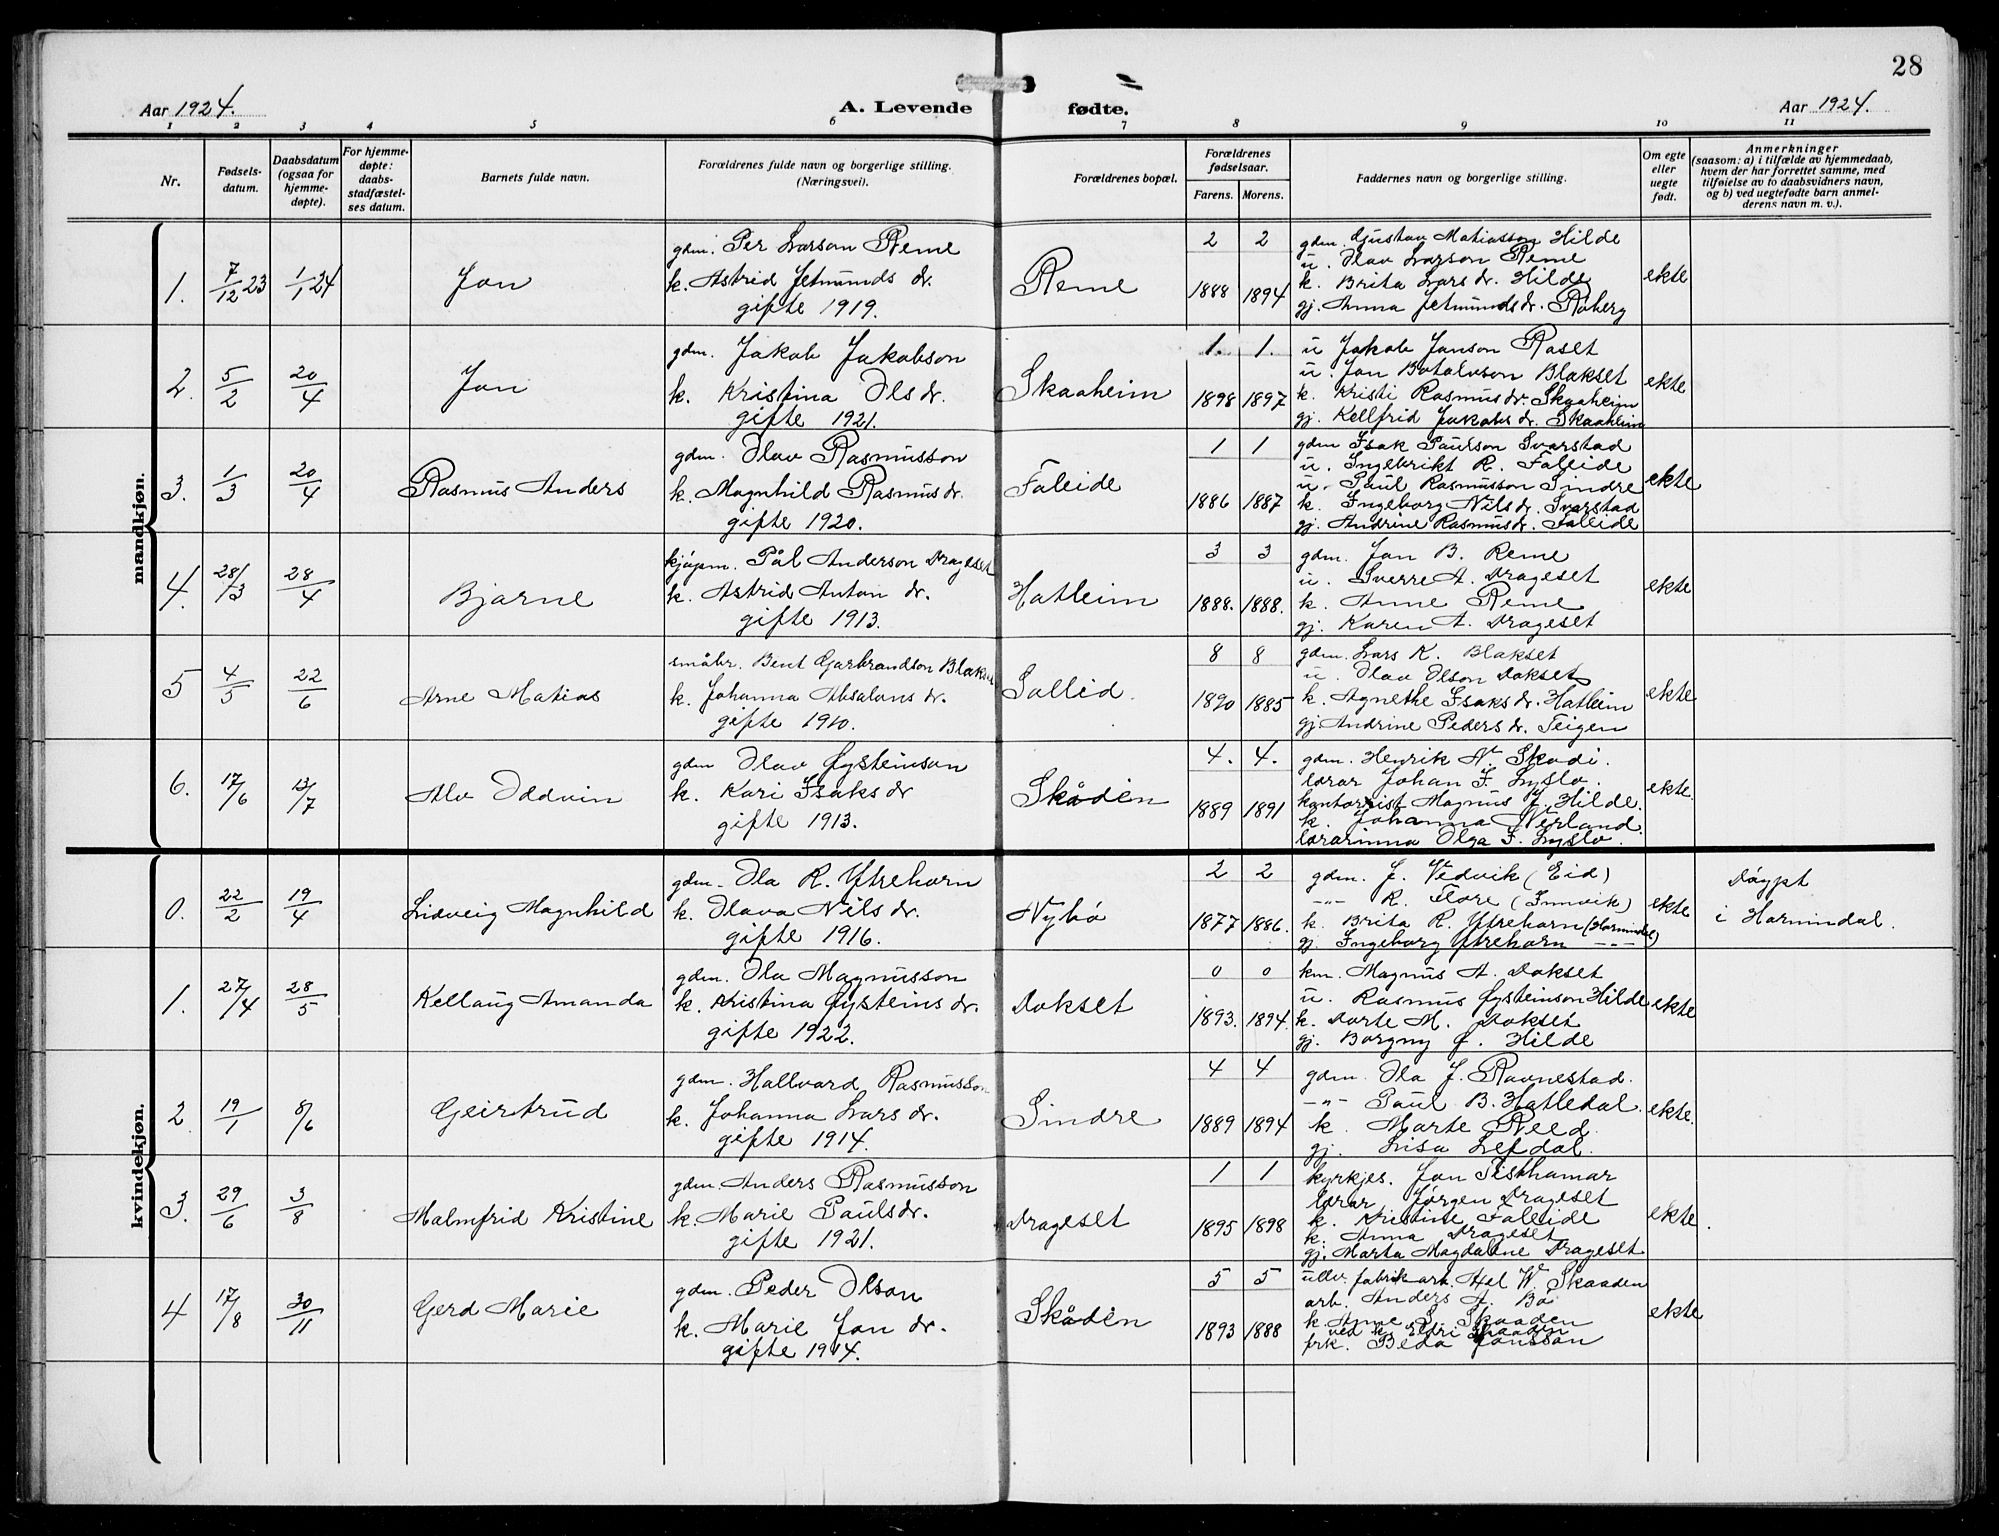 28
Aar 1924.
A. Levende fødte.
Aar 1924.
1 2 3 4 5 6 7 8 9 10 11
Nr.
Fødsels-
datum.
Daabsdatum
(ogsaa for
hjemme-
døpte).
For hjemme-
døpte:
daabs-
stadfæstel-
ses datum.
Barnets fulde navn.
Forældrenes fulde navn og borgerlige stilling.
(Næringsvei).
Forældrenes bopæl.
Forældrenes
fødselsaar.
Farens. Morens.
Faddernes navn og borgerlige stilling.
Om egte
eller
uegte
født.
Anmerkninger
(saasom: a) i tilfælde av hjemmedaab,
hvem der har forrettet samme, med
tilføielse av to daabsvidners navn,
og b) ved uegtefødte barn anmel-
derens navn m. v.).
mandkjøn.
1. 7/12 23 1/1 24 Jon
gdm. Per Larson Reme
k. Astrid Jetmunds dr.
gifte 1919.
Reme
2 2
1888 1894
gdm. Gustav Matiasson Hilde
u. Olav Larson Reme
k. Brita Lars dr. Hilde
gj. Anna Jetmundsdr. Roberg
ekte
2. 5/2 20/4 Jon
gdm. Jakob Jakobson
k. Kristina Olsdr.
gifte 1921.
Skaaheim
1. 1.
1898 1897
u Jakob Janson Raset
u. Jon Botolvson Blakset
k. Kristi Rasmusdr. Skaaheim
gj. Kellfrid Jakobs dr. Skaaheim
ekte
3. 1/3 20/4 Rasmus Anders
gdm. Olav Rasmusson
k. Magnhild Rasmusdr.
gifte 1920.
Faleide
1 1
1886 1887
gdm Isak Paulson Svarstad
u. Ingebrikt R. Faleide
u. Paul Rasmusson Sindre
k. Ingeborg Nilsdr. Svarstad
gj. Andrine Rasmusdr. Faleide
ekte
4. 28/3 28/4 Bjarne
kjøpm. Pål Anderson Drageset
k. Astrid Anton dr.
gifte 1913.
Hatleim
3 3
1888. 1888.
gdm. Jon B. Reme
u. Sverre A. Drageset
k. Anne Reme
gj. Karen A. Drageset
ekte
5 4/5 22/6 Arne Matias
småbr. Bent Gjerbrandson Blakset
k. Johanna Absalons dr.
gifte 1910.
Sollid.
8 8
1890 1885
gdm. Lars K. Blakset
u. Olav Olson Dokset
k. Agnethe Isaks dr. Hatleim
gj. Andrine Peders dr. Teigen
ekte
6. 17/6 13/7 Alv Oddvin
gdm Olav Øysteinson
k. Kari Isaks dr
gifte 1913.
Skådén
4. 4.
1889 1891
gdm. Henrik N. Skodi.
lærar Johan F. Lyslo.
kontorist Magnus J. Hilde.
k. Johanna Nerland.
lærarinna Olga F. Lyslo.
ekte.
kvindekjøn.
0. 22/2 19/4 Lidveig Magnhild
gdm. Ola R. Ytrehorn
k. Olava Nils dr.
gifte 1916.
Nybø
2 2
1877 1886.
gdm. J. Vedvik (Eid)
-"- R. Flore (Innvik)
k. Brita R. Ytrehorn (Hornindal)
gj. Ingeborg Ytrehorn -"-
ekte
Døypt
i Hornindal.
1. 27/4 28/5 Kellaug Amanda
gdm. Ola Magnusson
k. Kristina Øysteins dr.
gifte 1922.
Dokset
0 0
1893. 1894.
km. Magnus A. Dokset
u. Rasmus Øysteinson Hilde
k. Dorte M. Dokset
gj. Borgny Ø. Hilde
ekte
2 19/1 8/6 Geirtrud
gdm. Hallvard Rasmusson
k. Johanna Lars dr.
gifte 1914.
Sindre
4 4
1889 1894
gdm. Ola J. Ravnestad.
-"- Paul B. Hatledal.
k. Marte Reed
gj. Lisa Lefdal.
ekte.
3. 29/6 3/8 Malmfrid Kristine
gdm. Anders Rasmusson
k. Marie Pauls dr.
gifte 1921.
Drageset
1 1
1895 1898
kyrkjes. Jon Tisthamar
lærar Jørgen Drageset
k. Kristine Faleide
k. Anna Drageset
gj. Marta Magdalene Drageset
ekte.
4 17/8 30/11 Gerd Marie
gdm. Peder Olson
k. Marie Jon dr.
gifte 1914.
Skådén
5 5
1893 1888
ullv. fabrik arb. W. Skaaden
arb. Anders A. Bø
k. Anne S. Skaaden
ved k. Eldri Skaaden
frk. Beda Jonsson
ekte